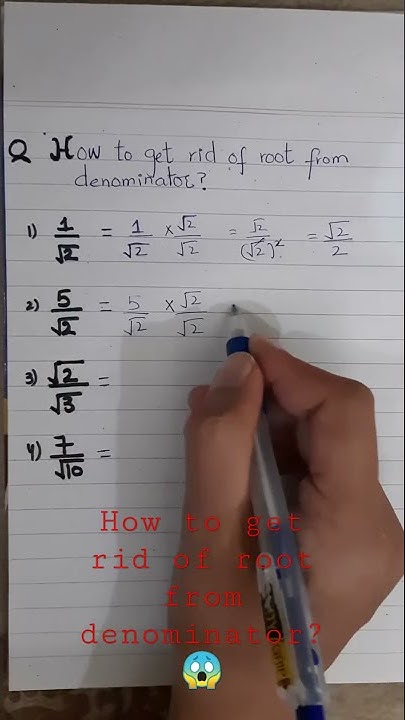 Q How to get rid of root from
denominator?
1) 1/√2 = 1/√2 × √2/√2 = √2/(√2)² = √2/2
2) 5/√2 = 5/√2 × √2/√2
3) √2/√3 =
4) 7/√10 =
How to get
rid of root
from
denominator?
😱